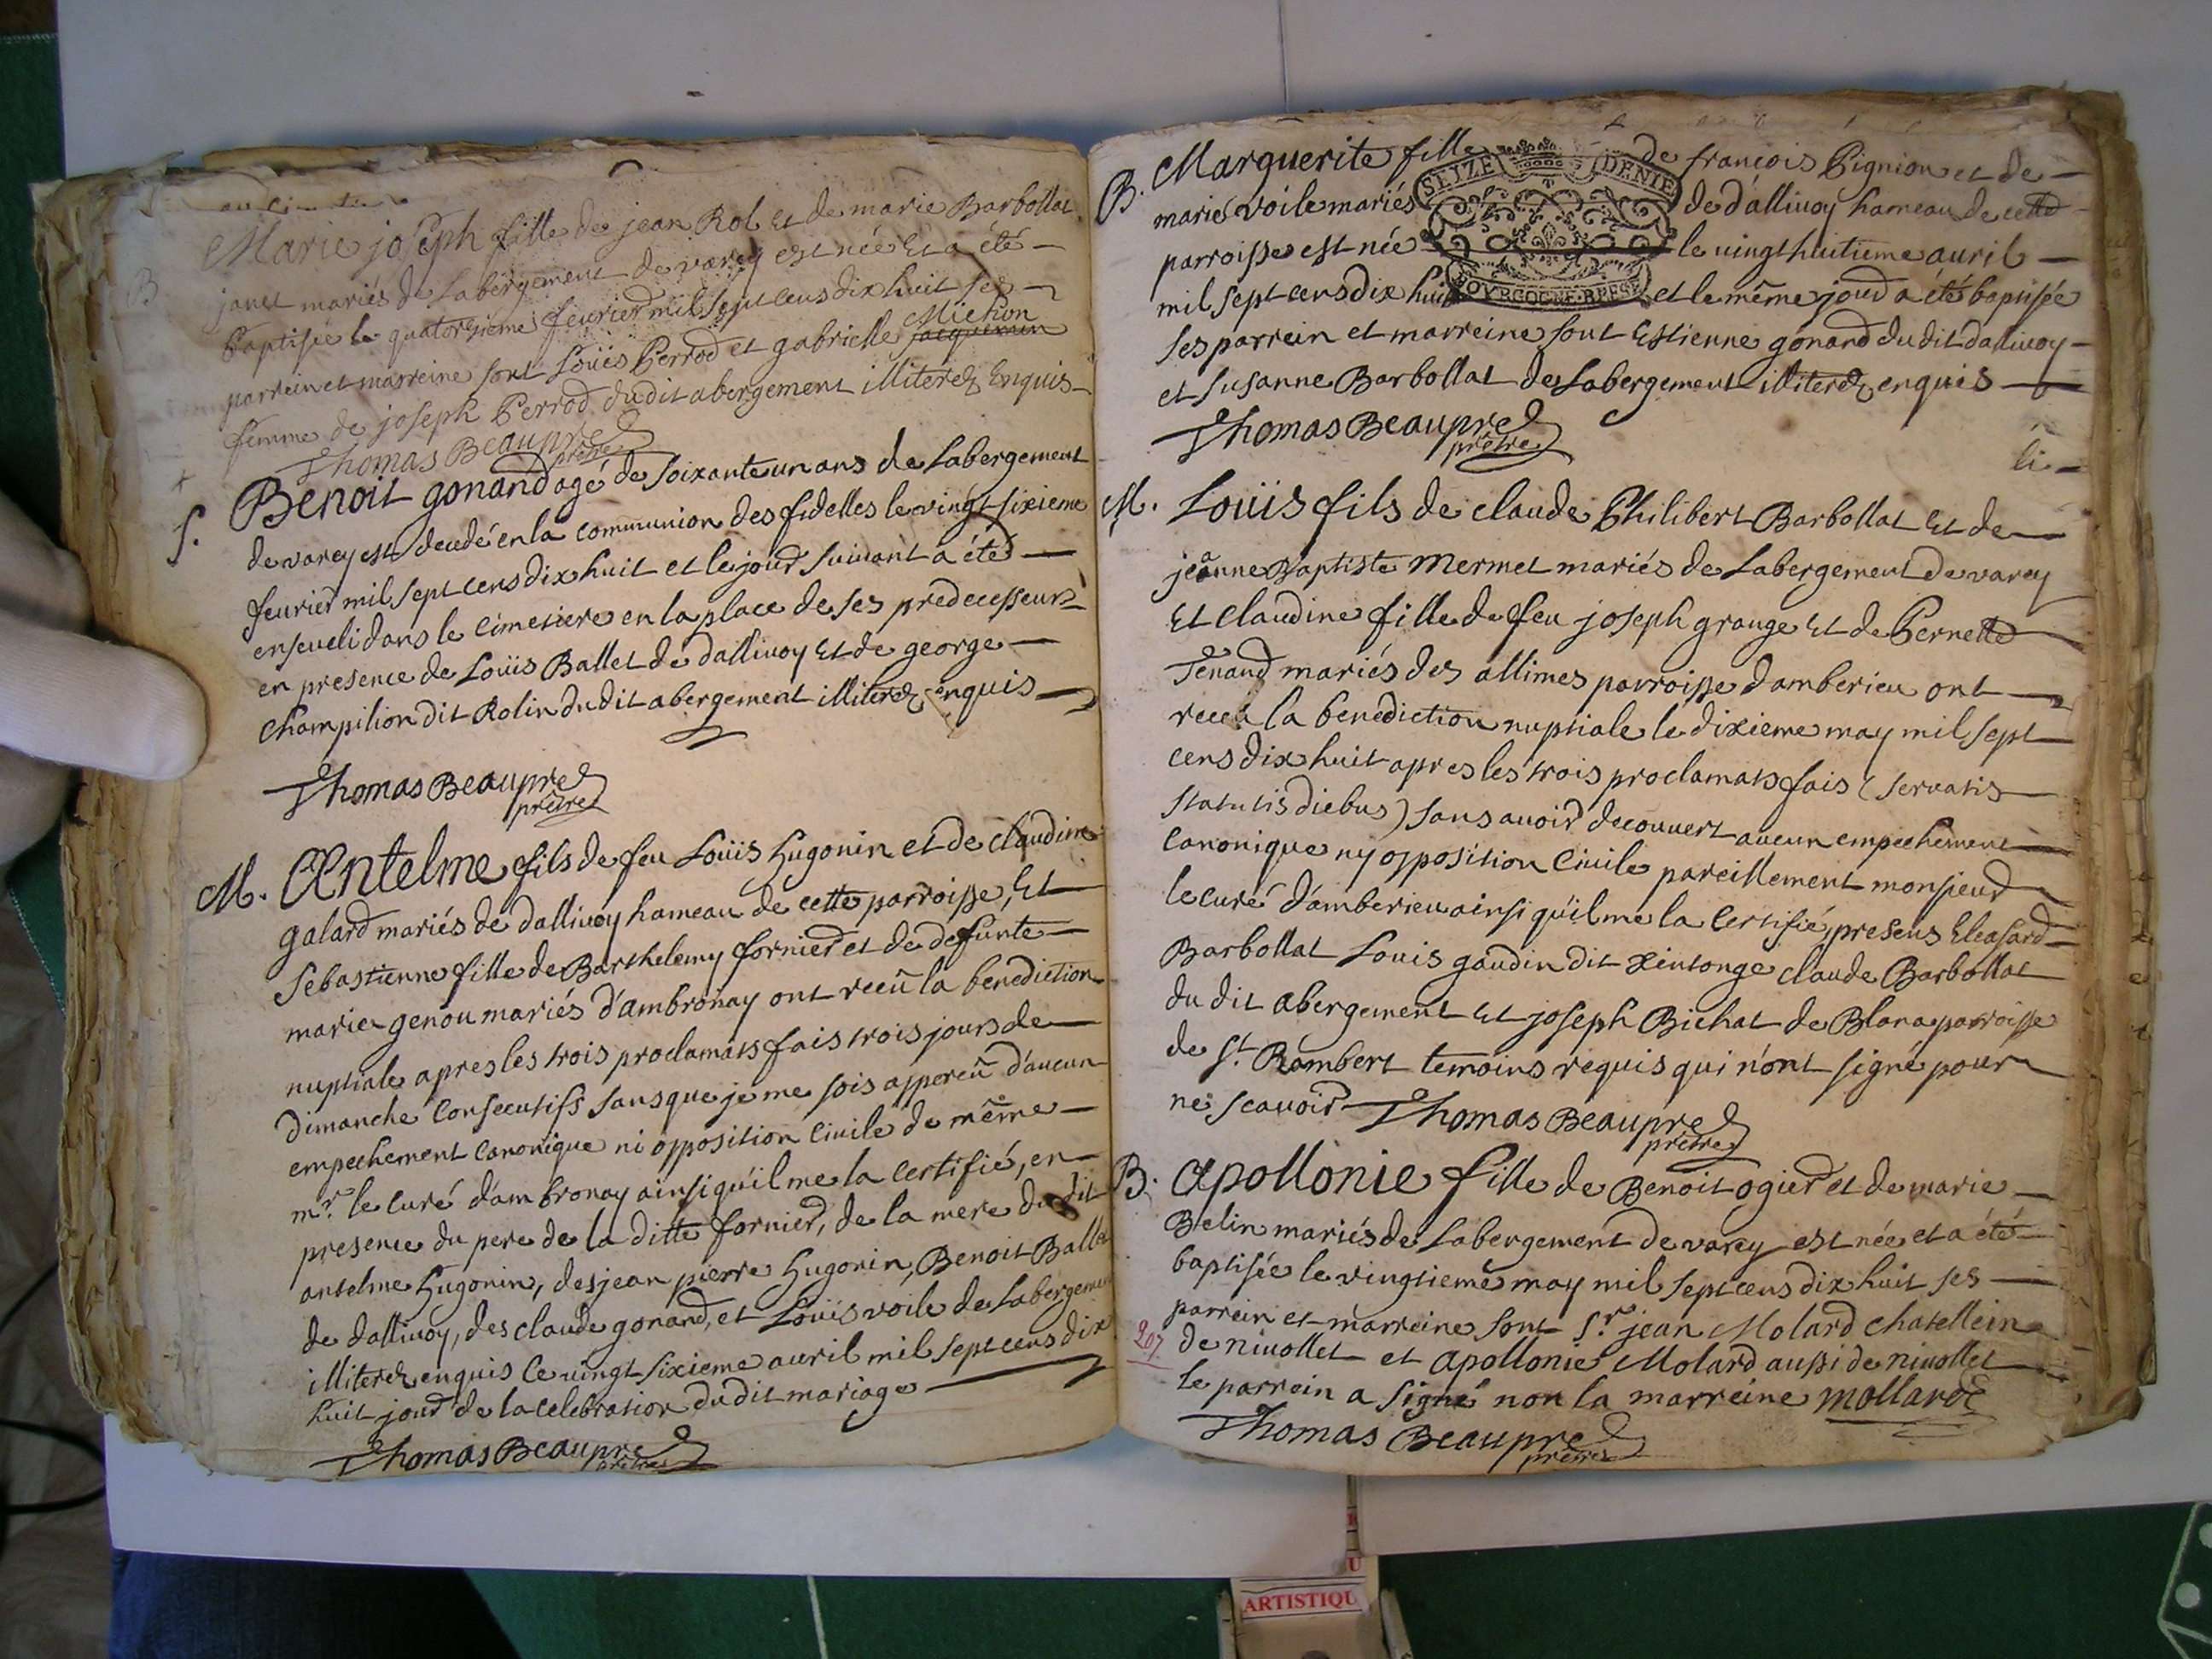 B
Marie joseph fille de jean Rol et de marie Barbollat
janet mariés de Labergement de varey est née Et a été
baptisée le quatorsieme feurier mil sept cens dix huit ses
Michon
parrein et marreine sont Loüis Perrod et gabrielle jacquemin
femme de joseph Perrod dudit abergement illiterez Enquis
Thomas Beaupred
prêtre
S. Benoit gonand agé de soixante un ans de Labergement
de varey est decedé en la communion des fidelles le vingt sixieme
feurier mil sept cens dix huit et le jour suivant a été
enseveli dans le cimetiere en la place de ses predecesseurs
en presence de Loüis Ballet de dallivoy Et de george
Champilion dit Rolin dudit abergement illiterez enquis
Thomas Beaupred
prêtre
M. Antelme fils de feu Loüis Hugonin et de claudine
galard mariés de dallivoy hameau de cette parroisse, Et
Sebastienne fille de Barthelemy fornier et de defunte
marie genou mariés d'ambronay ont receü la benediction
nuptiale apres les trois proclamats fais trois jours de
dimanche Consecutifs sans que je me sois appereü d'aucun
empechement Canonique ni opposition Civile de même
mr. le curé d'ambronay ainsi qu'il me la certifié, en
presence du pere de la ditte fornier, de la mere du dit
antelme Hugonin, des jean pierre Hugonin, Benoit Ballet
de dallivoy, des claude gonand, et Loüis voile de Labergement
illiterez enquis ce vingt sixieme auril mil sept cens dix
huit jour de la celebration dudit mariage
Thomas Beaupred
prêtre
B. Marguerite fille de françois Pignion et de
SEIZE DENIE
marie voile mariés de dallivoy hameau de cette
parroisse est née le vingt huitieme auril
mil sept cens dix huit et le même jour a été baptisée
BOVRGOGNE-BRESSE
ses parrein et marreine sont Estienne gonand du dit dallivoy
et Susanne Barbollat de Labergement illiterez enquis
Thomas Beaupred
prêtre
li
M. Loüis fils de claude Philibert Barbollat Et de
jeanne Baptiste Mermet mariés de Labergement de varey
Et Claudine fille de feu joseph grange Et de Pernette
Tenand mariés des allimes parroisse d'amberieu ont
receu la benediction nuptiale le dixieme may mil sept
cens dix huit apres les trois proclamats fais (servatis
statutis diebus) sans auoir decouvert aucun empechement
Canonique ny opposition Civile pareillement monsieur
le curé d'amberieu ainsi qu'il me la Certifié, presens Eleasard
Barbollat Louis gaudin dit Xintonge claude Barbollat
du dit abergement Et joseph Bichat de Blana parroisse
de St. Rambert temoins requis qui n'ont signé pour
ne scauoir Thomas Beaupred
prêtre
B. Apollonie fille de Benoit ogier et de marie
Belin mariés de Labergement de varey est née et a été
baptisée le vingtieme may mil sept cens dix huit ses
parrein et marreine sont Sr. jean Molard chatellein
207 de nivollet et Apollonie Molard aussi de nivollet
le parrein a signé non la marreine Mollard
Thomas Beaupred
prêtre
U
ARTISTIQU